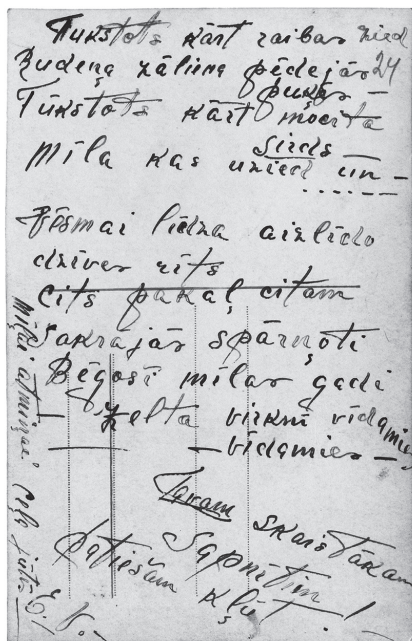 Tūkstots kārt raibas zied
Rudeņa zāliena pēdejās 24
puķes —
Tūkstots kārt mocita
Sirds
Mīla kas uzzied un —
Vēsmai līdza aizlido
dzīves rīts
Cits pakaļ citam
Sakrajās spārnoti
Bēgoši mīlas gadi
Zelta virknī vidamies
— vidamies —
Tavam skaistākam
Sapnītim
patiešām kļūt!
Mīļai atmiņai! Ceļa jūtis